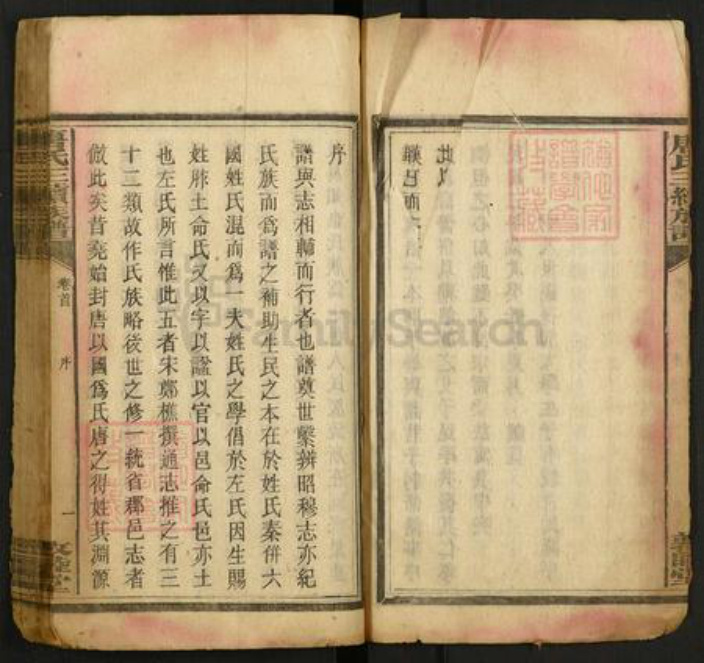 唐氏三續族譜
此以
難已而
序
譜與志相輔而行者也譜奠世繫辨昭穆志亦紀
氏族而爲譜之補助生民之本在於姓氏秦併六
國姓氏混而爲一夫姓氏之學倡於左氏因生賜
姓胙土命氏又以字以謚以官以邑命氏邑亦土
也左氏所言惟此五者宋鄭樵撰通志推之有三
十二類故作氏族略後世之修一統省郡邑志者
倣此矣昔堯始封唐以國爲氏唐之得姓其淵源
唐氏三續族譜
卷首
序
一
FamilySearch